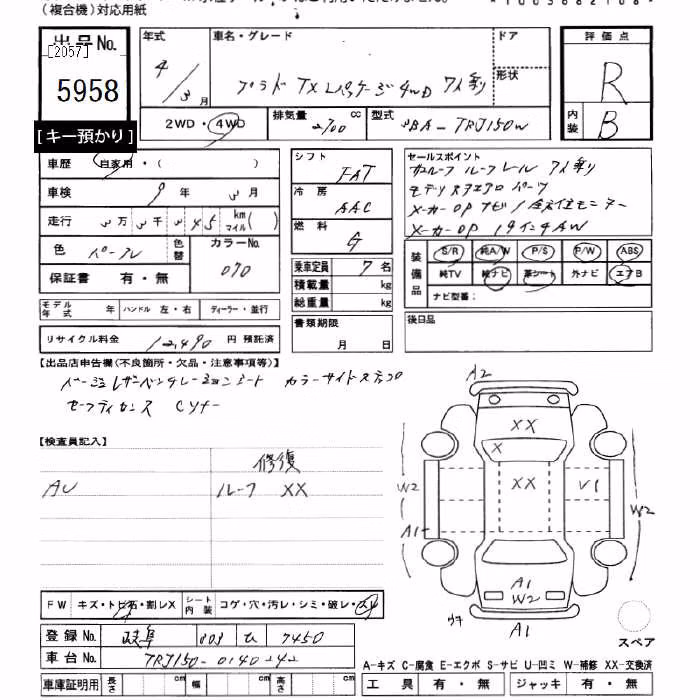 (複合機)対応用紙
出品No.
[2057]
5958
[キー預かり]
年式
4/3月
車名・グレード
プラド TX Lパッケージ 4WD 7人乗り
ドア
形状
評価点
R
内装
B
2WD・4WD
排気量
2700
cc
型式
CBA-TRJ150W
車歴
自家用・( )
車検
9年3月
走行
3万3千345
km
マイル
( )
色
パール
色替
カラーNo.
070
保証書
有・無
モデル年式
年
ハンドル
左・右
ディーラー・並行
リサイクル料金
12,490
円 預託済
シフト
FAT
冷房
AAC
燃料
G
乗車定員
7名
積載量
kg
総重量
kg
書類期限
月 日
セールスポイント
サンルーフ ルーフレール 7人乗り
モデリスタエアロパーツ
メーカーOPナビ/全方位モニター
メーカーOP 19インチAW
装備品
S/R
純A/W
P/S
P/W
ABS
純TV
純ナビ
革シート
外ナビ
エアB
ナビ型番:
後日品
【出品店申告欄(不良箇所・欠品・注意事項等)】
ベージュレザーベンチレーションシート カラーサイドステップ
セーフティセンス
【検査員記入】
修復
AU
ルーフ XX
A2
XX
X
XX
V1
W2
A1
W2
A1
W2
A1
ウキ
スペア
FW
キズ・トビ石・割レX
シート内装
コゲ・穴・汚レ・シミ・破レ・スレ
登録No.
岐阜 303 ひ 7450
車台No.
TRJ150-0140242
車庫証明用
長さ
cm
幅
cm
高さ
cm
A-キズ C-腐食 E-エクボ S-サビ U-凹ミ W-補修 XX-交換済
工具
有・無
ジャッキ
有・無